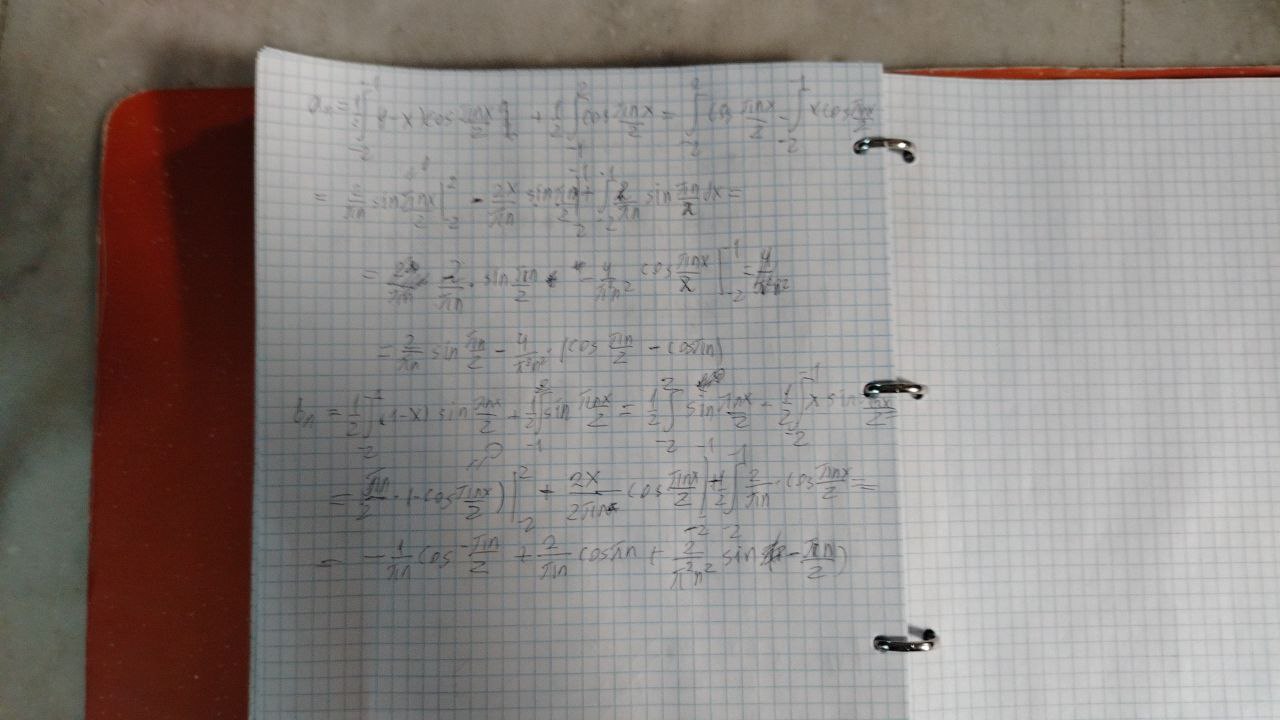 aₙ = 1/2 ∫₋₂⁻¹ (1-x)cos πnx/2 + 1/2 ∫₋₁² cos πnx/2 = ∫₋₂² cos πnx/2 - ∫₋₂⁻¹ x cos πnx/2
= 2/πn sin πnx/2 |₋₂² - 2x/πn sin πn/2 + ∫₋₂⁻¹ 2/πn sin πn/2 dx =
= 2/πn · sin πn/2 - 4/π²n² cos πnx/2 |₋₂⁻¹ = 4/π²n²
= 2/πn sin πn/2 - 4/π²n² · (cos πn/2 - cosπn)
bₙ = 1/2 ∫₋₂⁻¹ (1-x) sin πnx/2 + 1/2 ∫₋₁² sin πnx/2 = 1/2 ∫₋₂² sin πnx/2 - 1/2 ∫₋₂⁻¹ x sin πnx/2 =
= πn/2 · (-cos πnx/2) |₋₂² + 2x/2πn cos πnx/2 |₋₂⁻¹ + 1/2 ∫₋₂⁻¹ 2/πn · cos πnx/2 =
= - 1/πn cos -πn/2 + 2/πn cosπn + 2/π²n² sin - πn/2)